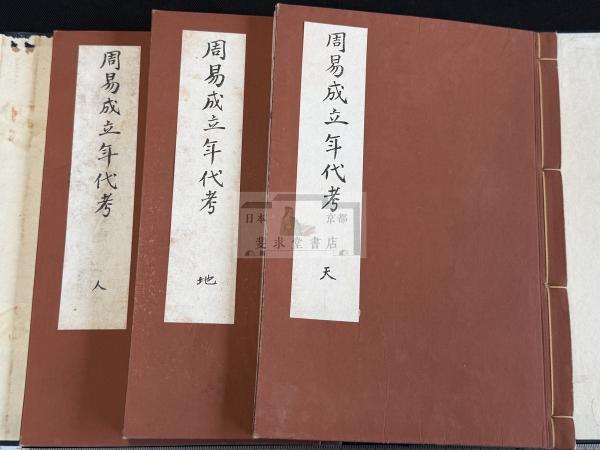 周易成立年代考
天
周易成立年代考
地
周易成立年代考
人
日本 京都
斐求堂書店